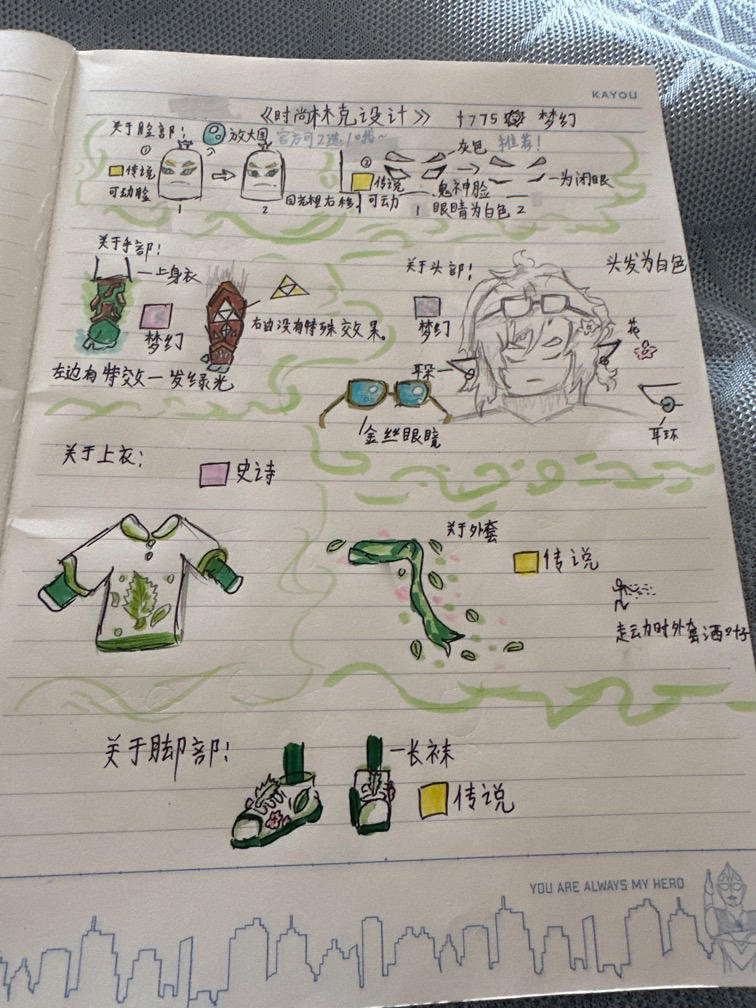 KAYOU
《时尚林克设计》 +775 梦幻
关于脸部: 放大图 官方可2选1哦~
① 传说 可动脸
1 2
目光向右移
② 传说 可动
灰色 推荐!
鬼神脸
一为闭眼
1 眼睛为白色 2
关于手部!
一上身衣
梦幻
右边没有特殊效果。
左边有特效一发绿光
关于头部!
头发为白色
梦幻
耳朵一
花
金丝眼镜
耳环
关于上衣:
史诗
关于外套
传说
走动时外套洒叶
关于脚部!
一长袜
传说
YOU ARE ALWAYS MY HERO